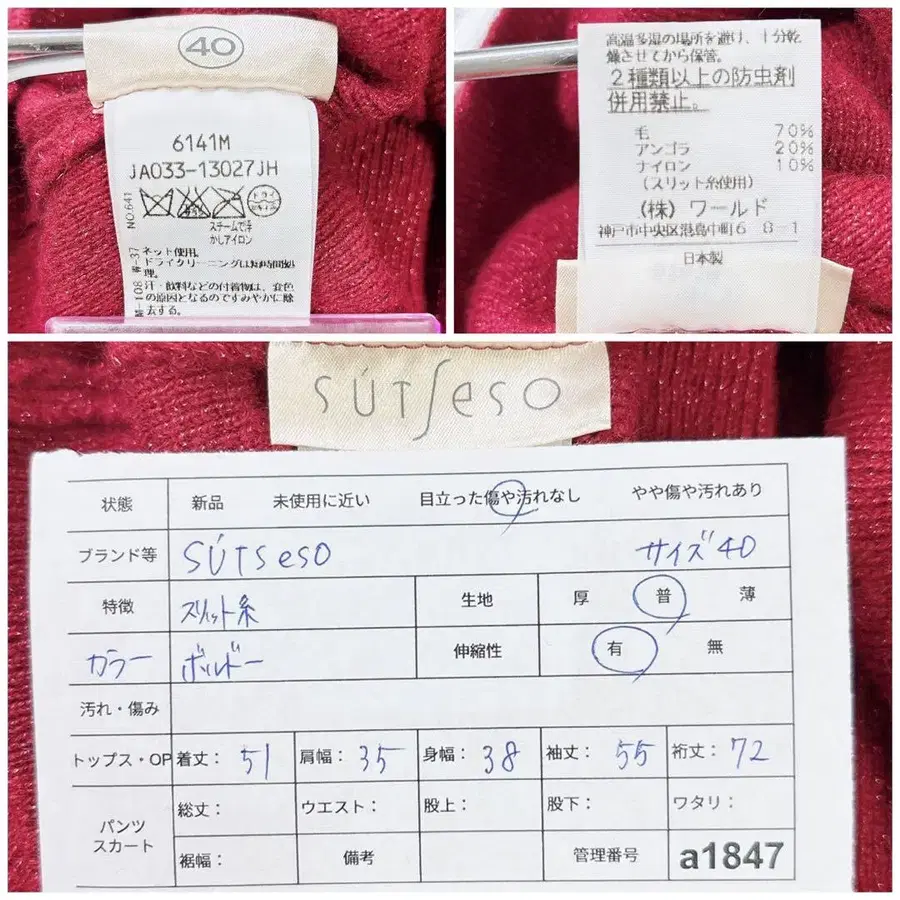 40
6141M
JA033-13027JH
ドライ
スチームで浮
かしアイロン
NO.641
ネット使用。
ドライクリーニングは短時間処
理。
汗・飲料などの付着物は、食色
の原因となるのですみやかに除
去する。
高温多湿の場所を避け、十分乾
燥させてから保管。
2種類以上の防虫剤
併用禁止。
毛 70%
アンゴラ 20%
ナイロン 10%
(スリット糸使用)
(株) ワールド
神戸市中央区港島中町6 8-1
日本製
SÚTSeSO
状態 新品 未使用に近い 目立った傷や汚れなし やや傷や汚れあり
ブランド等 SÚTSeSO サイズ40
特徴 スリット糸 生地 厚 普 薄
カラー ボルドー 伸縮性 有 無
汚れ・傷み
トップス・OP 着丈: 51 肩幅: 35 身幅: 38 袖丈: 55 裄丈: 72
パンツ スカート 総丈: ウエスト: 股上: 股下: ワタリ:
裾幅: 備考 管理番号 a1847